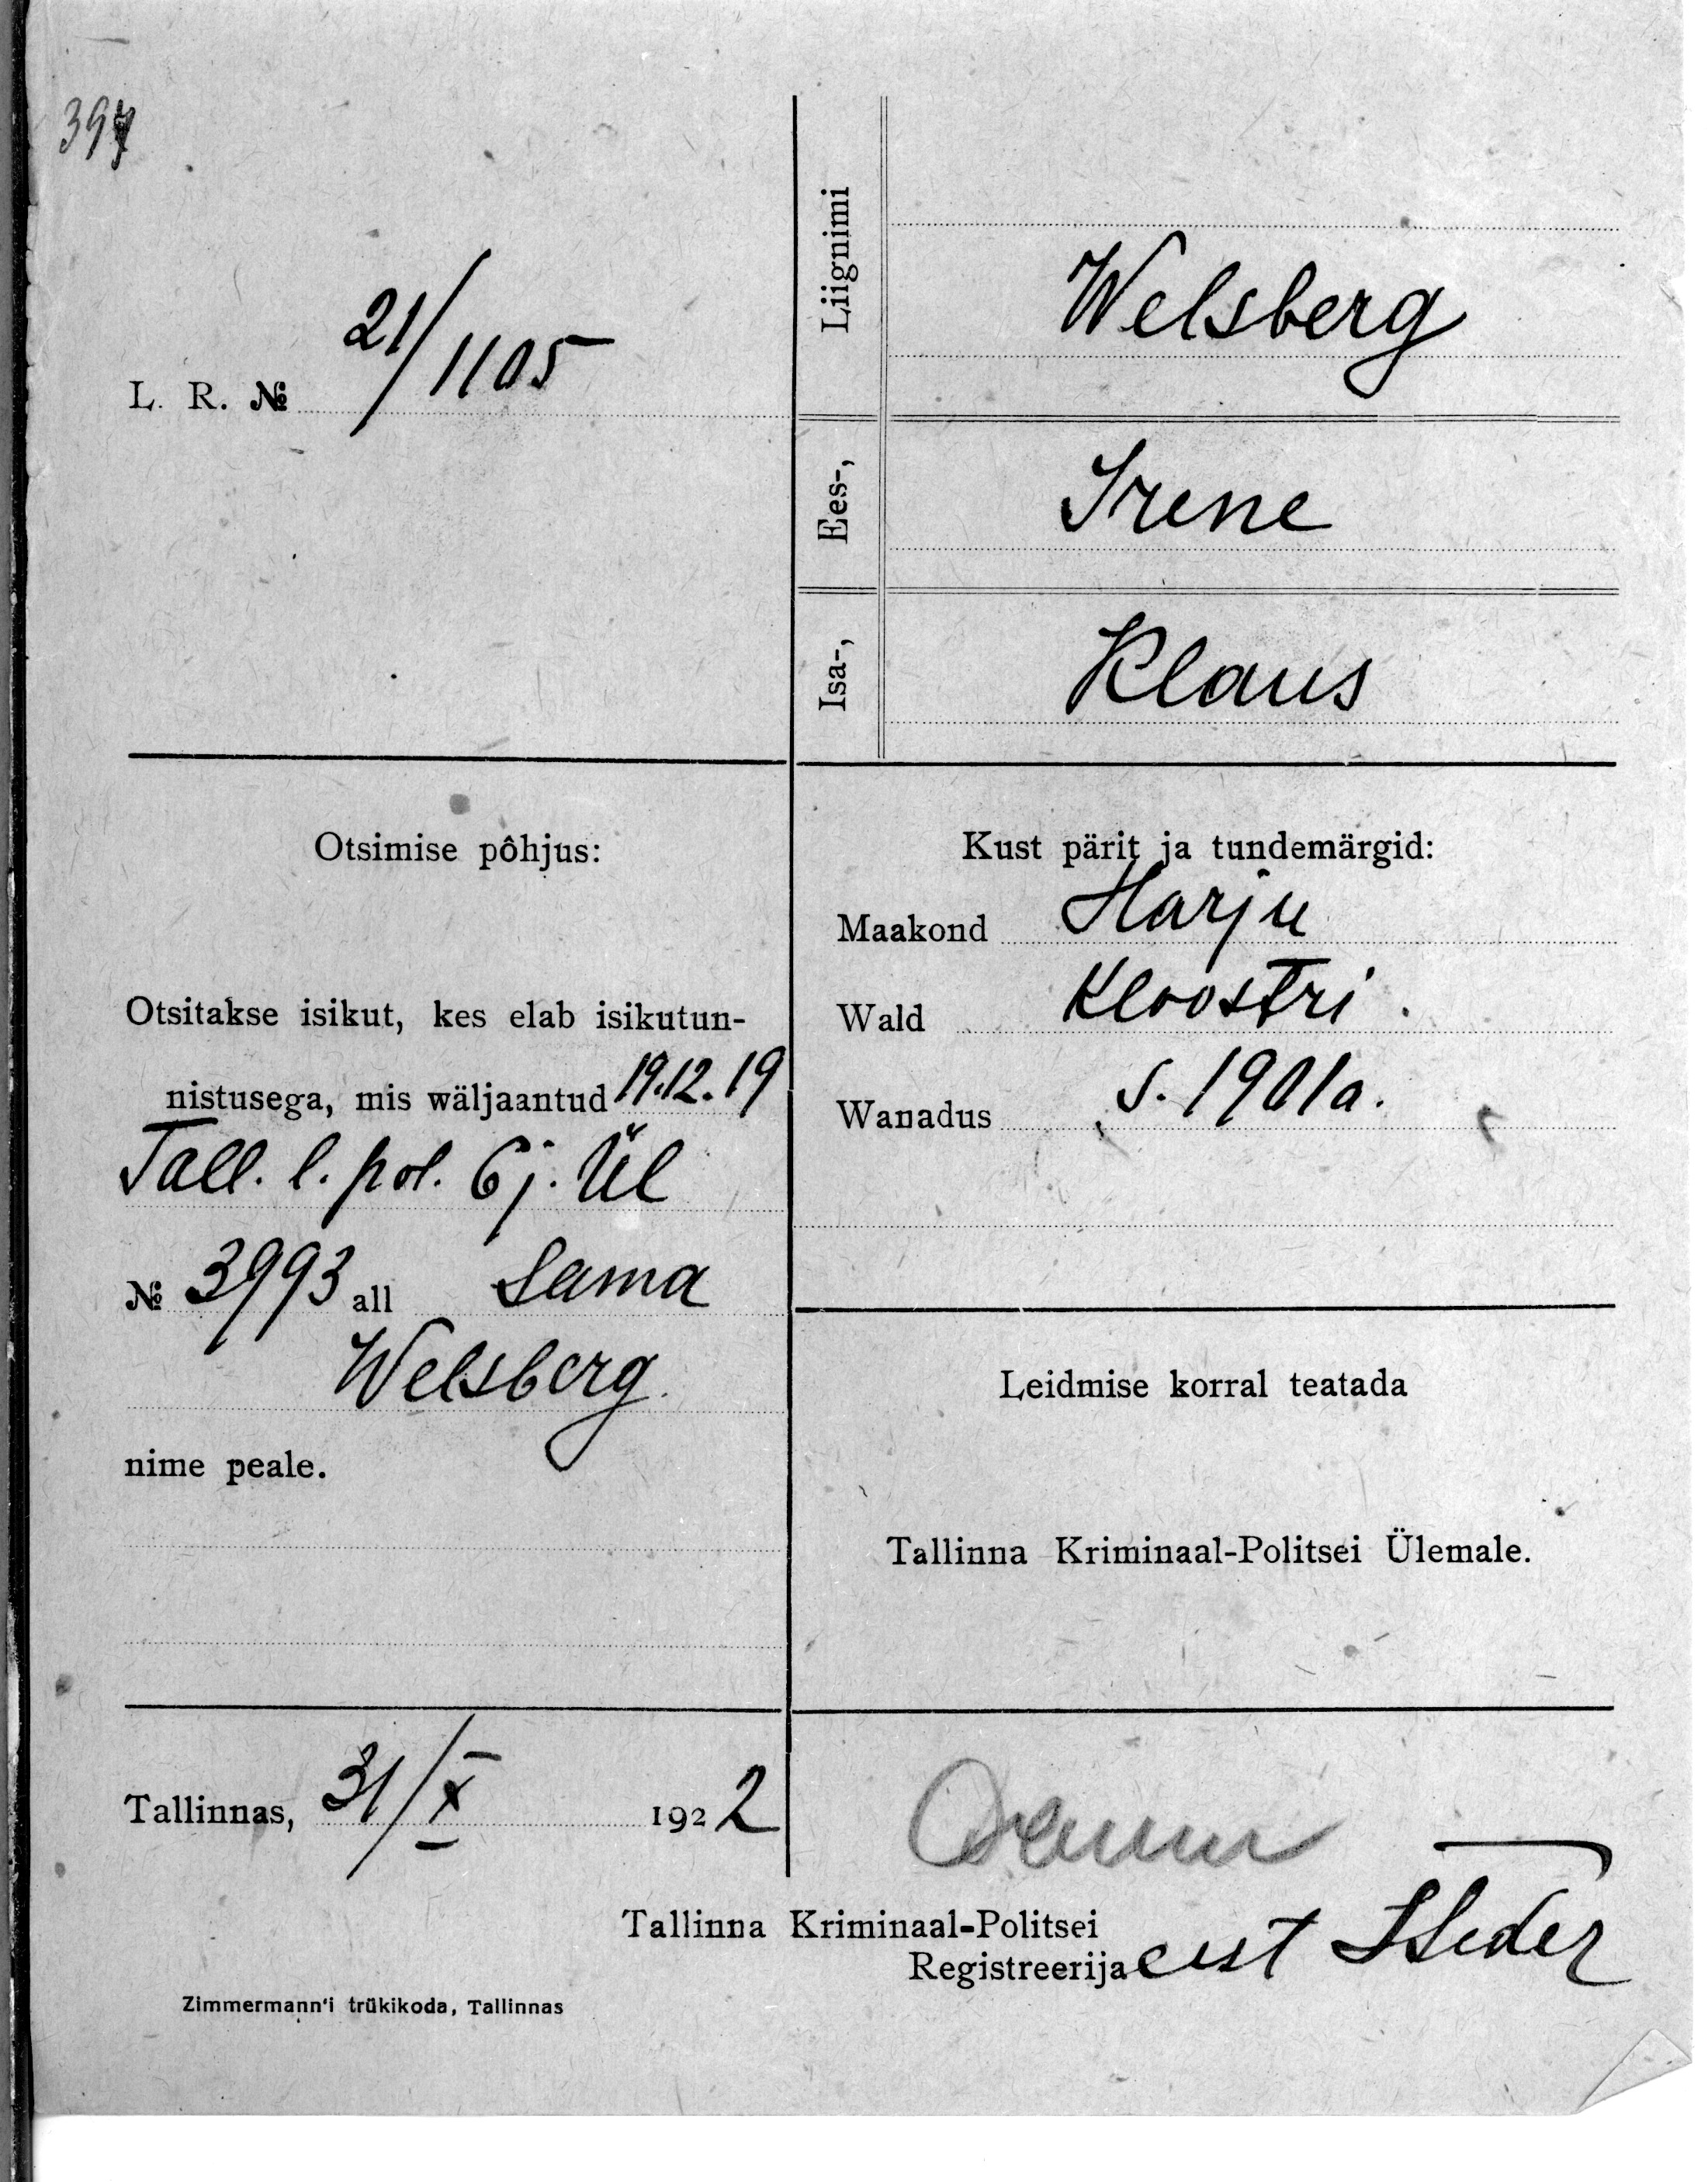 L. R. № 21/1105
Liignimi
Welsberg
Ees-,
Irene
Isa-,
Klaus
Otsimise põhjus:
Otsitakse isikut, kes elab isikutun-
nistusega, mis wäljaantud 19.12.19
Tall. l. pol. 6 j. Ül
№ 3993 all Sama
Welsberg
nime peale.
Kust pärit ja tundemärgid:
Maakond Harju
Wald Kloostri.
Wanadus s. 1901 a.
Leidmise korral teatada
Tallinna Kriminaal-Politsei Ülemale.
Tallinnas, 31/X 1922
Tallinna Kriminaal-Politsei
Registreerija eest
Zimmermann'i trükikoda, Tallinnas